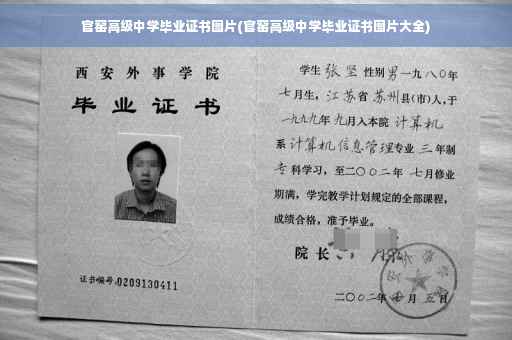 官窑高级中学毕业证书图片(官窑高级中学毕业证书图片大全)
西安外事学院
毕业证书
证书编号:0209130411
学生 张坚 性别 男 一九八〇年
七月生, 江苏省 苏州 县(市)人, 于
一九九九年 九月入本院 计算机
系 计算机信息管理 专业 三 年制
专 科学习, 至二〇〇二年 七月修业
期满, 学完教学计划规定的全部课程,
成绩合格, 准予毕业。
院长
二〇〇二年 月 五日